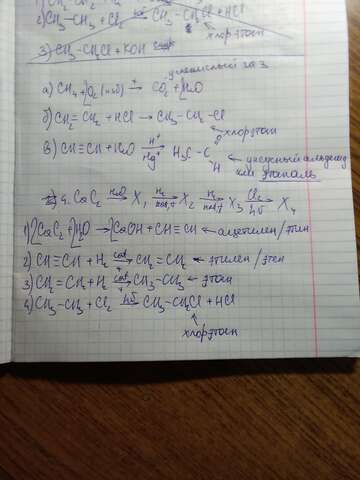 2) CH₃-CH₃ + Cl₂ →(hν) CH₃-CH₂Cl + HCl
хлорэтан
3) CH₃-CH₂Cl + KOH
углекислый газ
а) CH₄ + 2O₂ (изб) →(t) CO₂ + 2H₂O
б) CH₂=CH₂ + HCl → CH₃-CH₂-Cl
хлорэтан
в) CH≡CH + H₂O →(H⁺, Hg²⁺) H₃C-C O H
уксусный альдегид
или этаналь
4. CaC₂ →(H₂O) X₁ →(H₂, кат, t) X₂ →(H₂, кат, t) X₃ →(Cl₂, hν) X₄
1) 2CaC₂ + 2H₂O → 2CaOH + CH≡CH ← ацетилен/этин
2) CH≡CH + H₂ →(cat, t) CH₂=CH₂ ← этилен/этен
3) CH₂=CH₂ + H₂ →(cat, t) CH₃-CH₃ ← этан
4) CH₃-CH₃ + Cl₂ →(hν) CH₃-CH₂Cl + HCl
хлорэтан